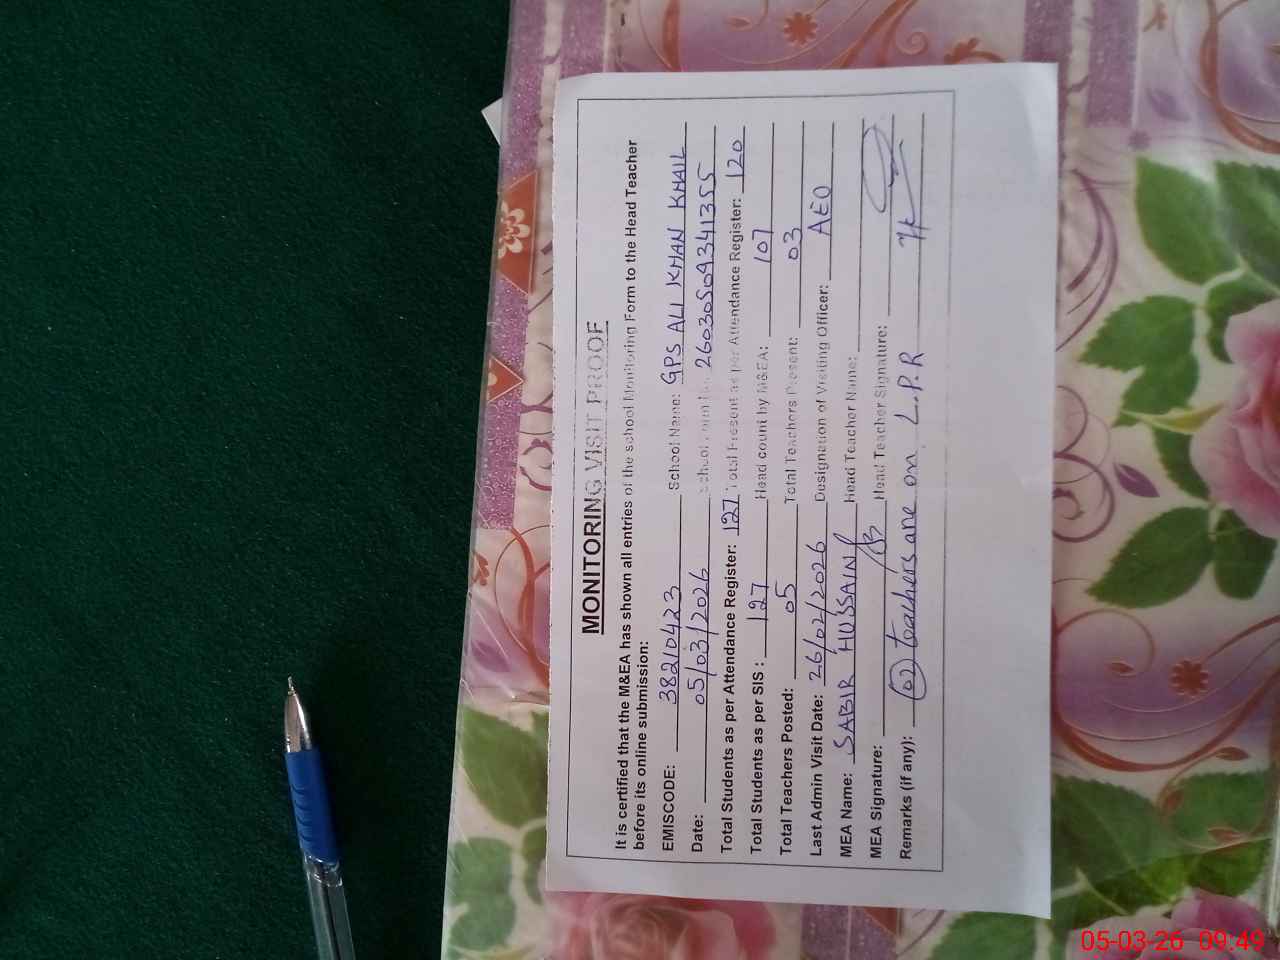 MONITORING VISIT PROOF
It is certified that the M&EA has shown all entries of the school Monitoring Form to the Head Teacher
before its online submission:
EMISCODE: 38210423 School Name: GPS ALI KHAN KHAIL
Date: 05/03/2026 School Form No. 26030509341355
Total Students as per Attendance Register: 127 Total Present as per Attendance Register: 120
Total Students as per SIS : 127 Head count by M&EA: 107
Total Teachers Posted: 05 Total Teachers Present: 03
Last Admin Visit Date: 26/02/2026 Designation of Visiting Officer: AEO
MEA Name: SABIR HUSSAIN Head Teacher Name:
MEA Signature: Head Teacher Signature:
Remarks (if any): (02) teachers are on L.P.R
05-03-26 09:49